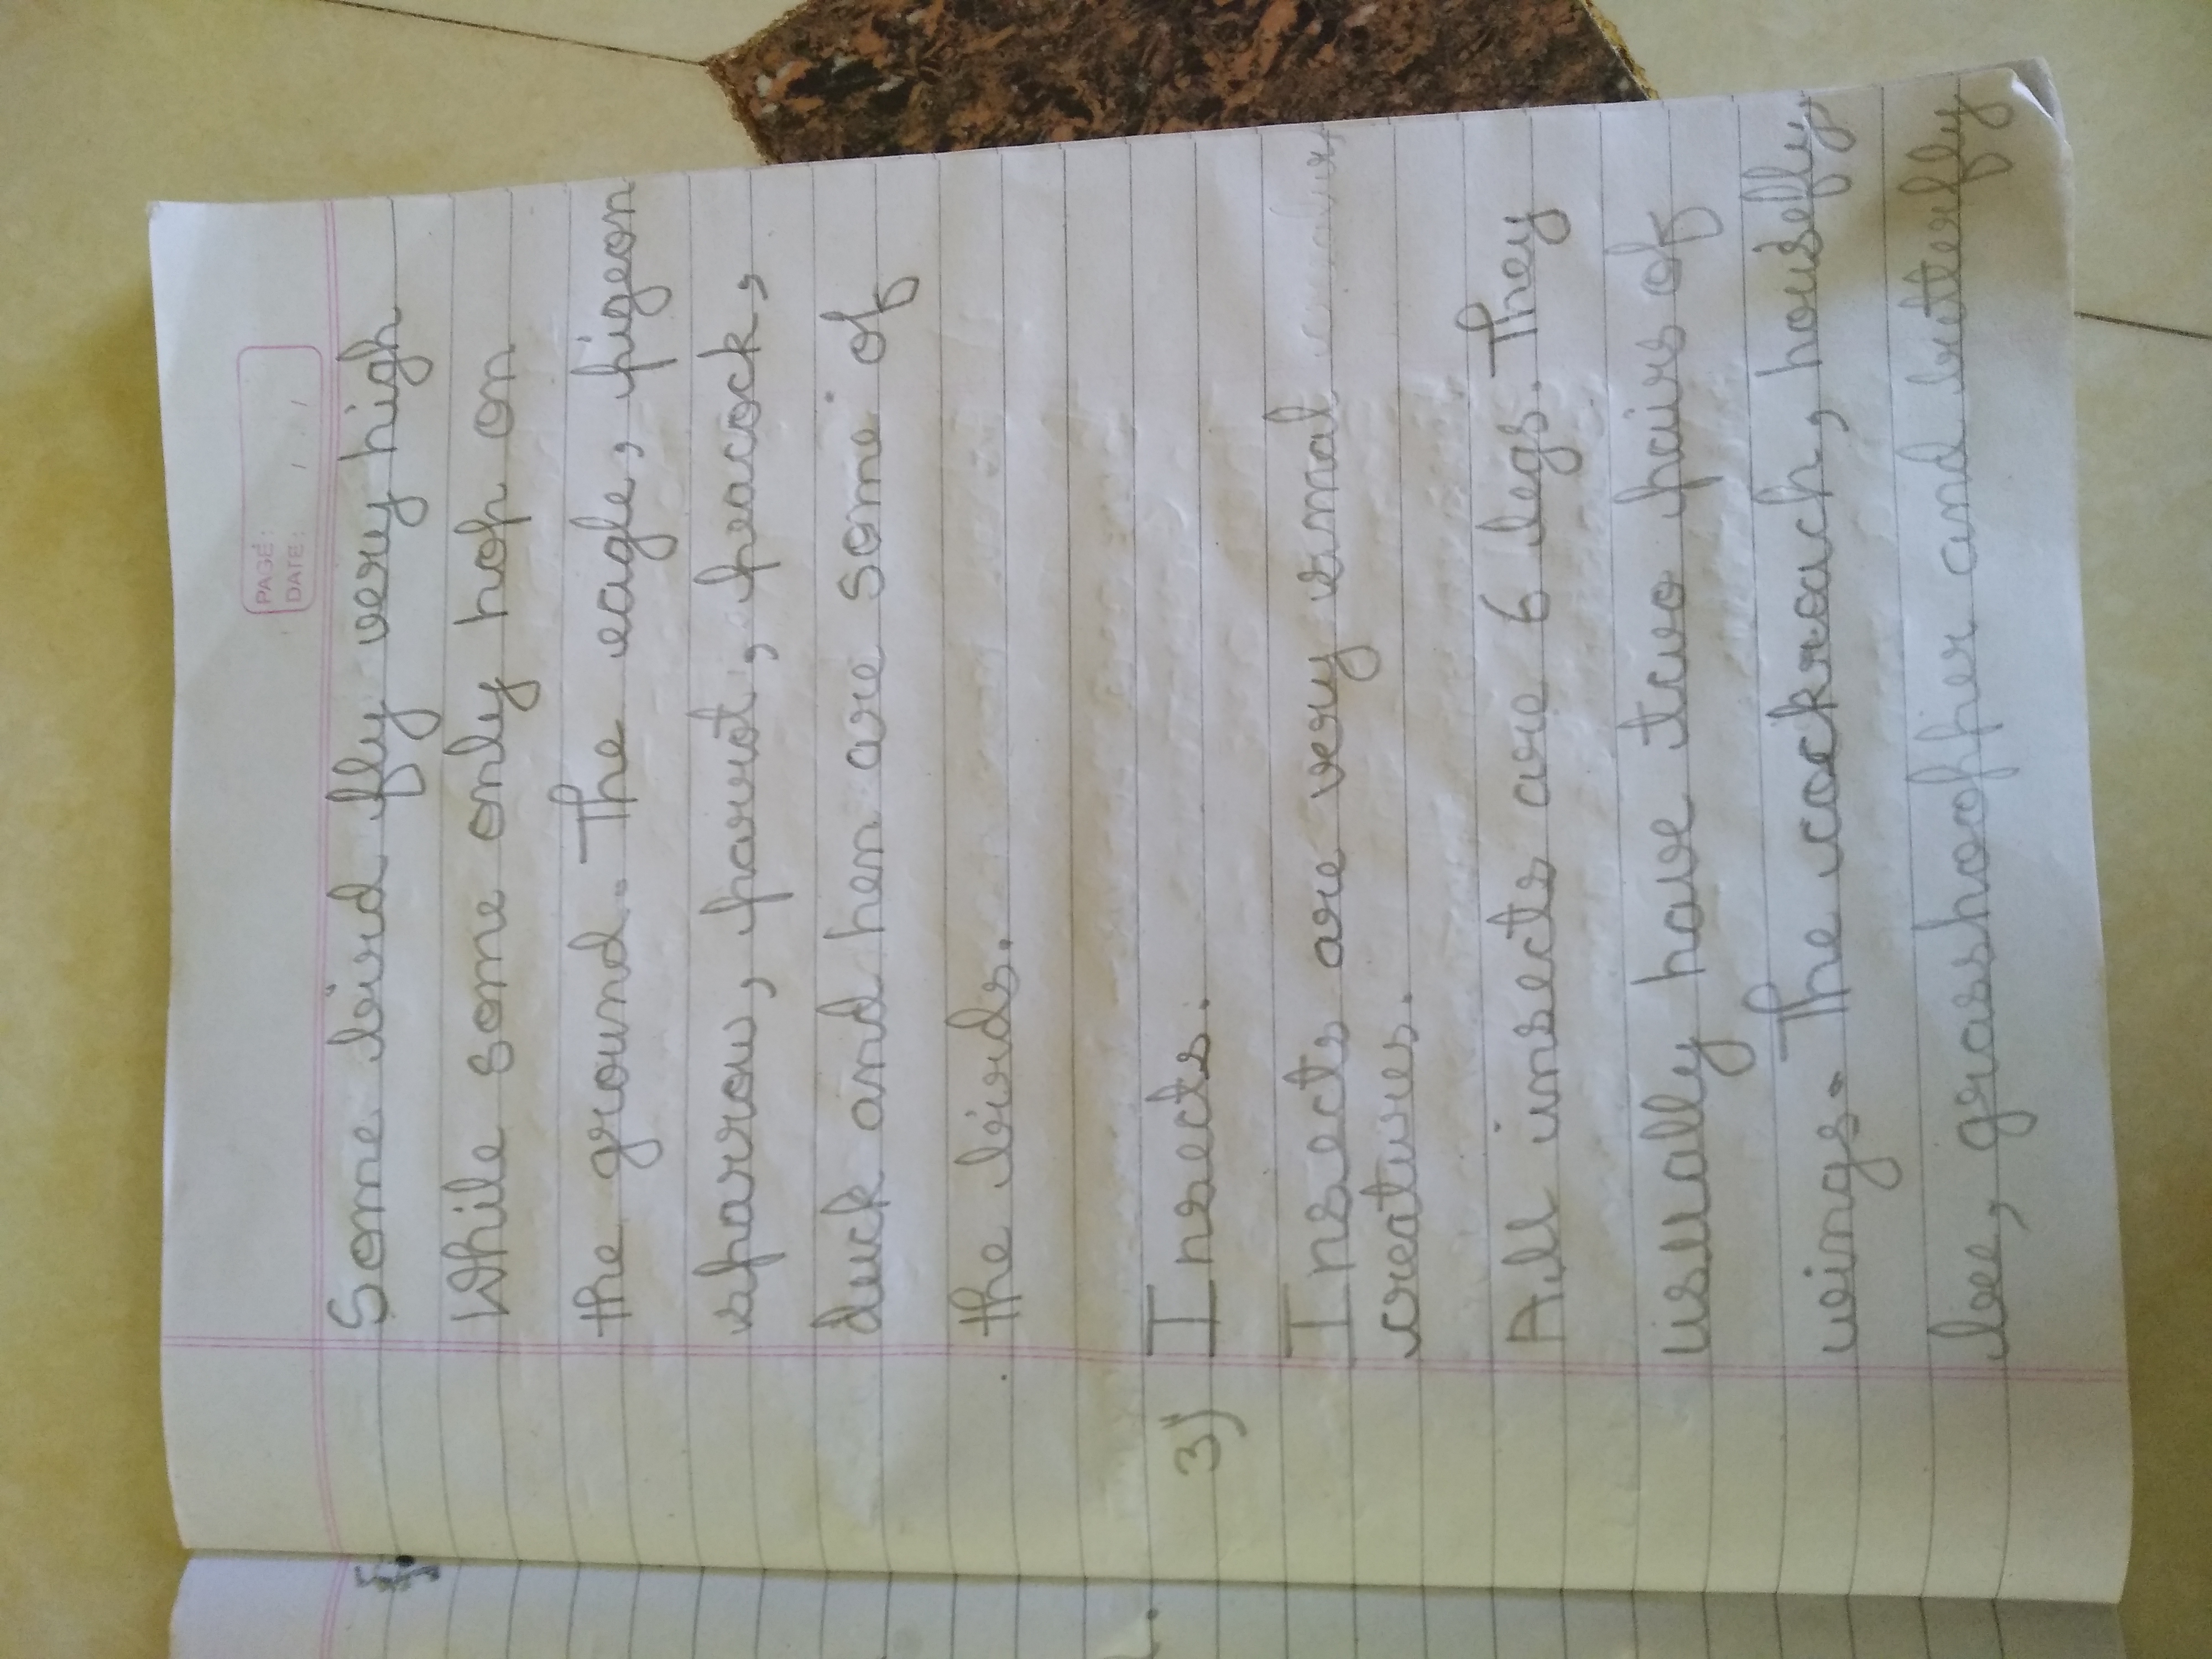 PAGE:
DATE: / /
Some bird fly very high
While some only hop on
the ground. The eagle, pigeon
sparrow, parrot, peacock,
duck and hen are some of
the birds.
3) Insects.
Insects are very smal
creatures.
All insects are 6 legs. They
usually have two pairs of
wings. The cockroach, housefly
bee, grasshoopper and butterfly